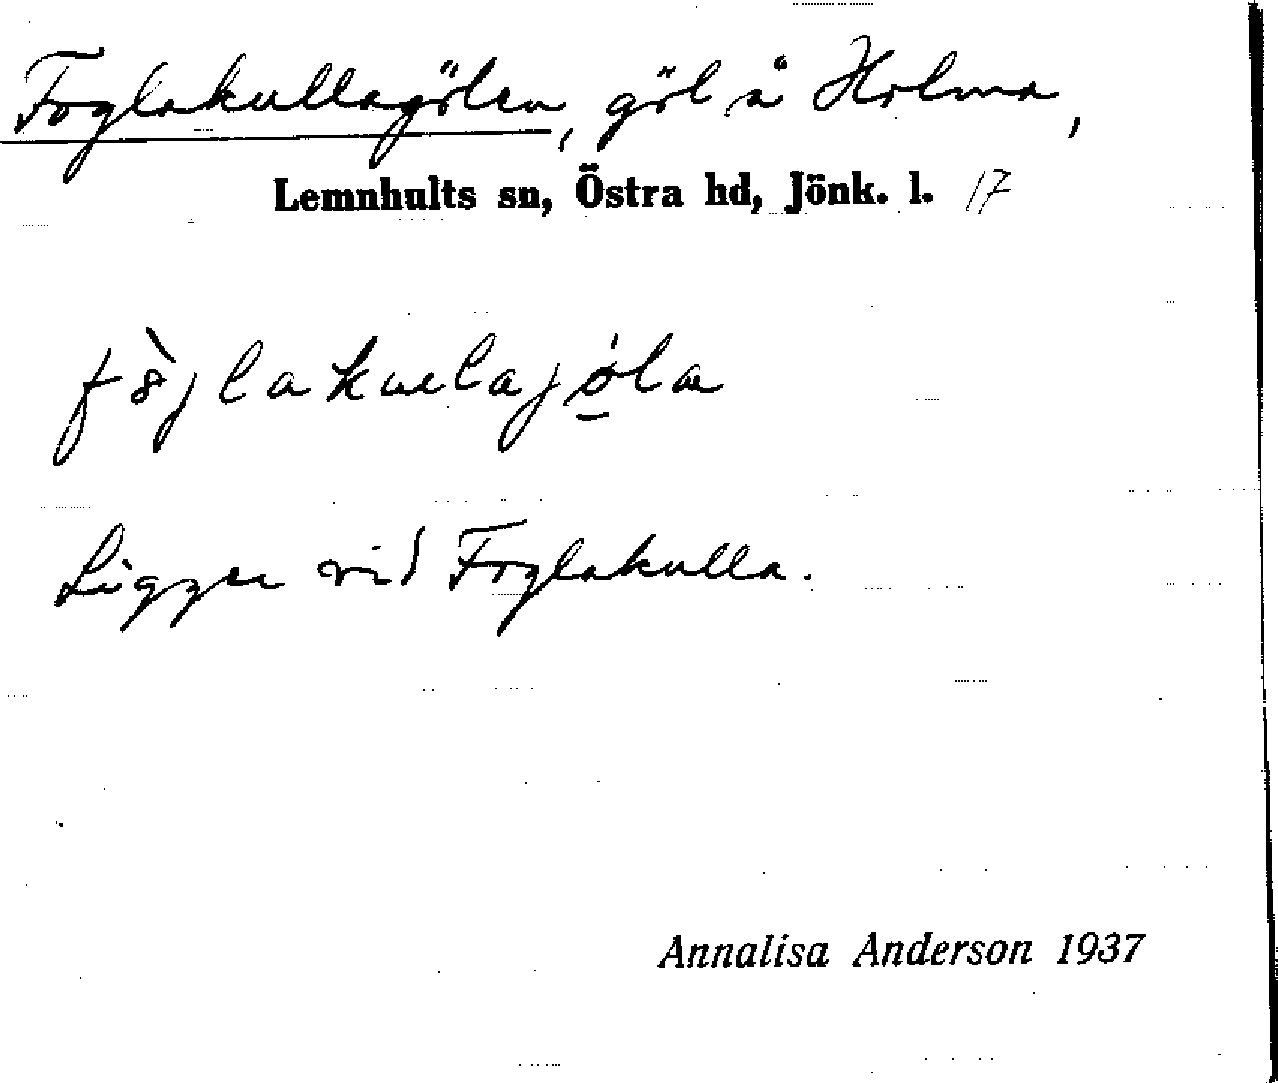 Foglakullagölen, göl å Holma,
Lemnhults sn, Östra hd, Jönk. l. 17
Ligger vid Foglakulla.
Annalisa Anderson 1937